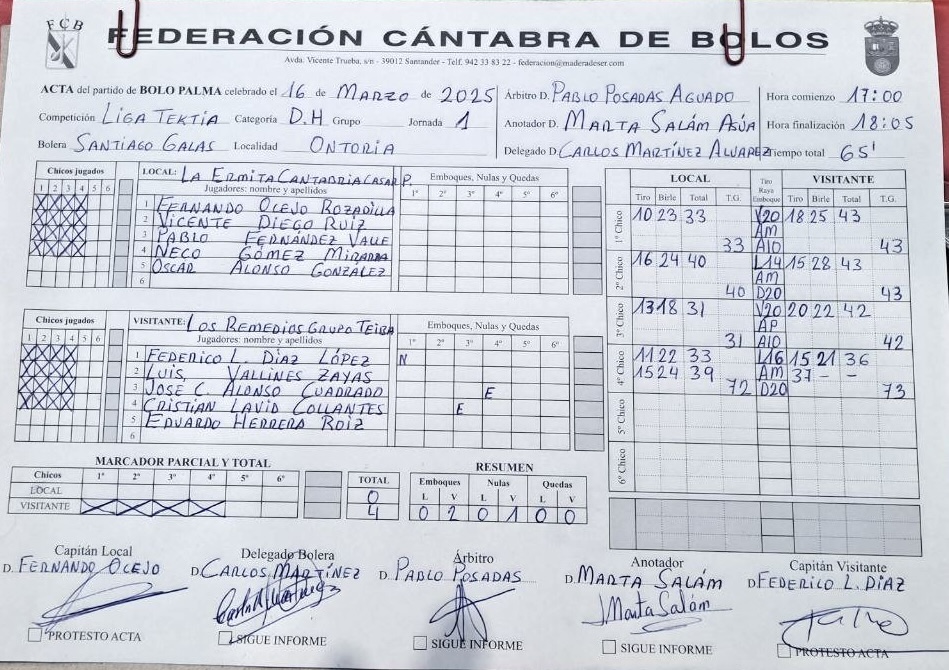 FCB
FEDERACIÓN CÁNTABRA DE BOLOS
Avda. Vicente Trueba, s/n - 39012 Santander - Telf. 942 33 83 22 - federacion@maderadeser.com
ACTA del partido de BOLO PALMA celebrado el 16 de MARZO de 2025
Competición LIGA TEKTIA Categoría D.H Grupo Jornada 1
Bolera SANTIAGO GALAS Localidad ONTORIA
Árbitro D. PABLO POSADAS AGUADO
Anotador D. MARTA SALÁM ASÚA
Delegado D. CARLOS MARTÍNEZ ALVAREZ
Hora comienzo 17:00
Hora finalización 18:05
Tiempo total 65'
Chicos jugados
1 2 3 4 5 6
LOCAL: LA ERMITA CANTABRIA CASAR P.
Jugadores: nombre y apellidos
1 FERNANDO OLEJO ROZADILLA
2 VICENTE DIEGO RUIZ
3 PABLO FERNÁNDEZ VALLE
4 NECO GÓMEZ MIRARRA
5 OSCAR ALONSO GONZÁLEZ
6
Emboques, Nulas y Quedas
1º 2º 3º 4º 5º 6º
Chicos jugados
1 2 3 4 5 6
VISITANTE: LOS REMEDIOS GRUPO TEIBA
Jugadores: nombre y apellidos
1 FEDERICO L. DÍAZ LÓPEZ N
2 LUIS VALLINES ZAYAS
3 JOSE C. ALONSO CUADRADO E
4 CRISTIAN LAVID COLLANTES E
5 EDUARDO HERRERA ROIZ
6
Emboques, Nulas y Quedas
1º 2º 3º 4º 5º 6º
LOCAL Tiro Raya Emboque VISITANTE
Tiro Birle Total T.G. Tiro Birle Total T.G.
1º Chico 10 23 33 V20 18 25 43
AM
33 A10 43
2º Chico 16 24 40 L14 15 28 43
AM
40 D20 43
3º Chico 13 18 31 V20 20 22 42
AP
31 A10 42
4º Chico 11 22 33 L16 15 21 36
15 24 39 AM 37 - -
72 D20 73
5º Chico
6º Chico
MARCADOR PARCIAL Y TOTAL
Chicos 1º 2º 3º 4º 5º 6º TOTAL
LOCAL 0
VISITANTE X X X X 4
RESUMEN
Emboques Nulas Quedas
L V L V L V
0 2 0 1 0 0
Capitán Local
D. FERNANDO OLEJO
PROTESTO ACTA
Delegado Bolera
D. CARLOS MARTÍNEZ
SIGUE INFORME
Árbitro
D. PABLO POSADAS
SIGUE INFORME
Anotador
D. MARTA SALÁM
Marta Salám
SIGUE INFORME
Capitán Visitante
D. FEDERICO L. DÍAZ
PROTESTO ACTA